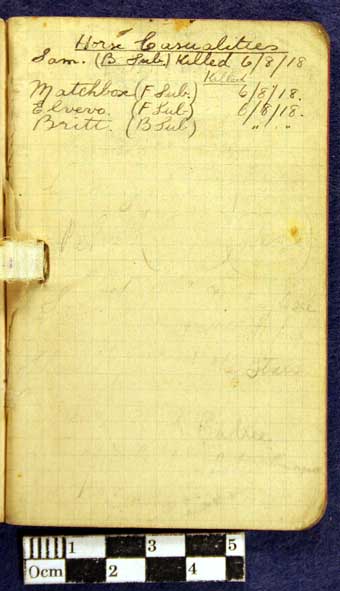 Horse Casualities
Sam. (B Sub.) Killed 6/8/18
Killed
Matchbox (F Sub.) 6/8/18.
Elvevo. (F Sub.) 6/8/18.
Britt. (B Sub) " "
Stars
1 3 5
0cm 2 4